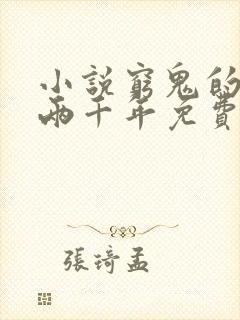 小說窮鬼的
兩千年免費
張琦孟